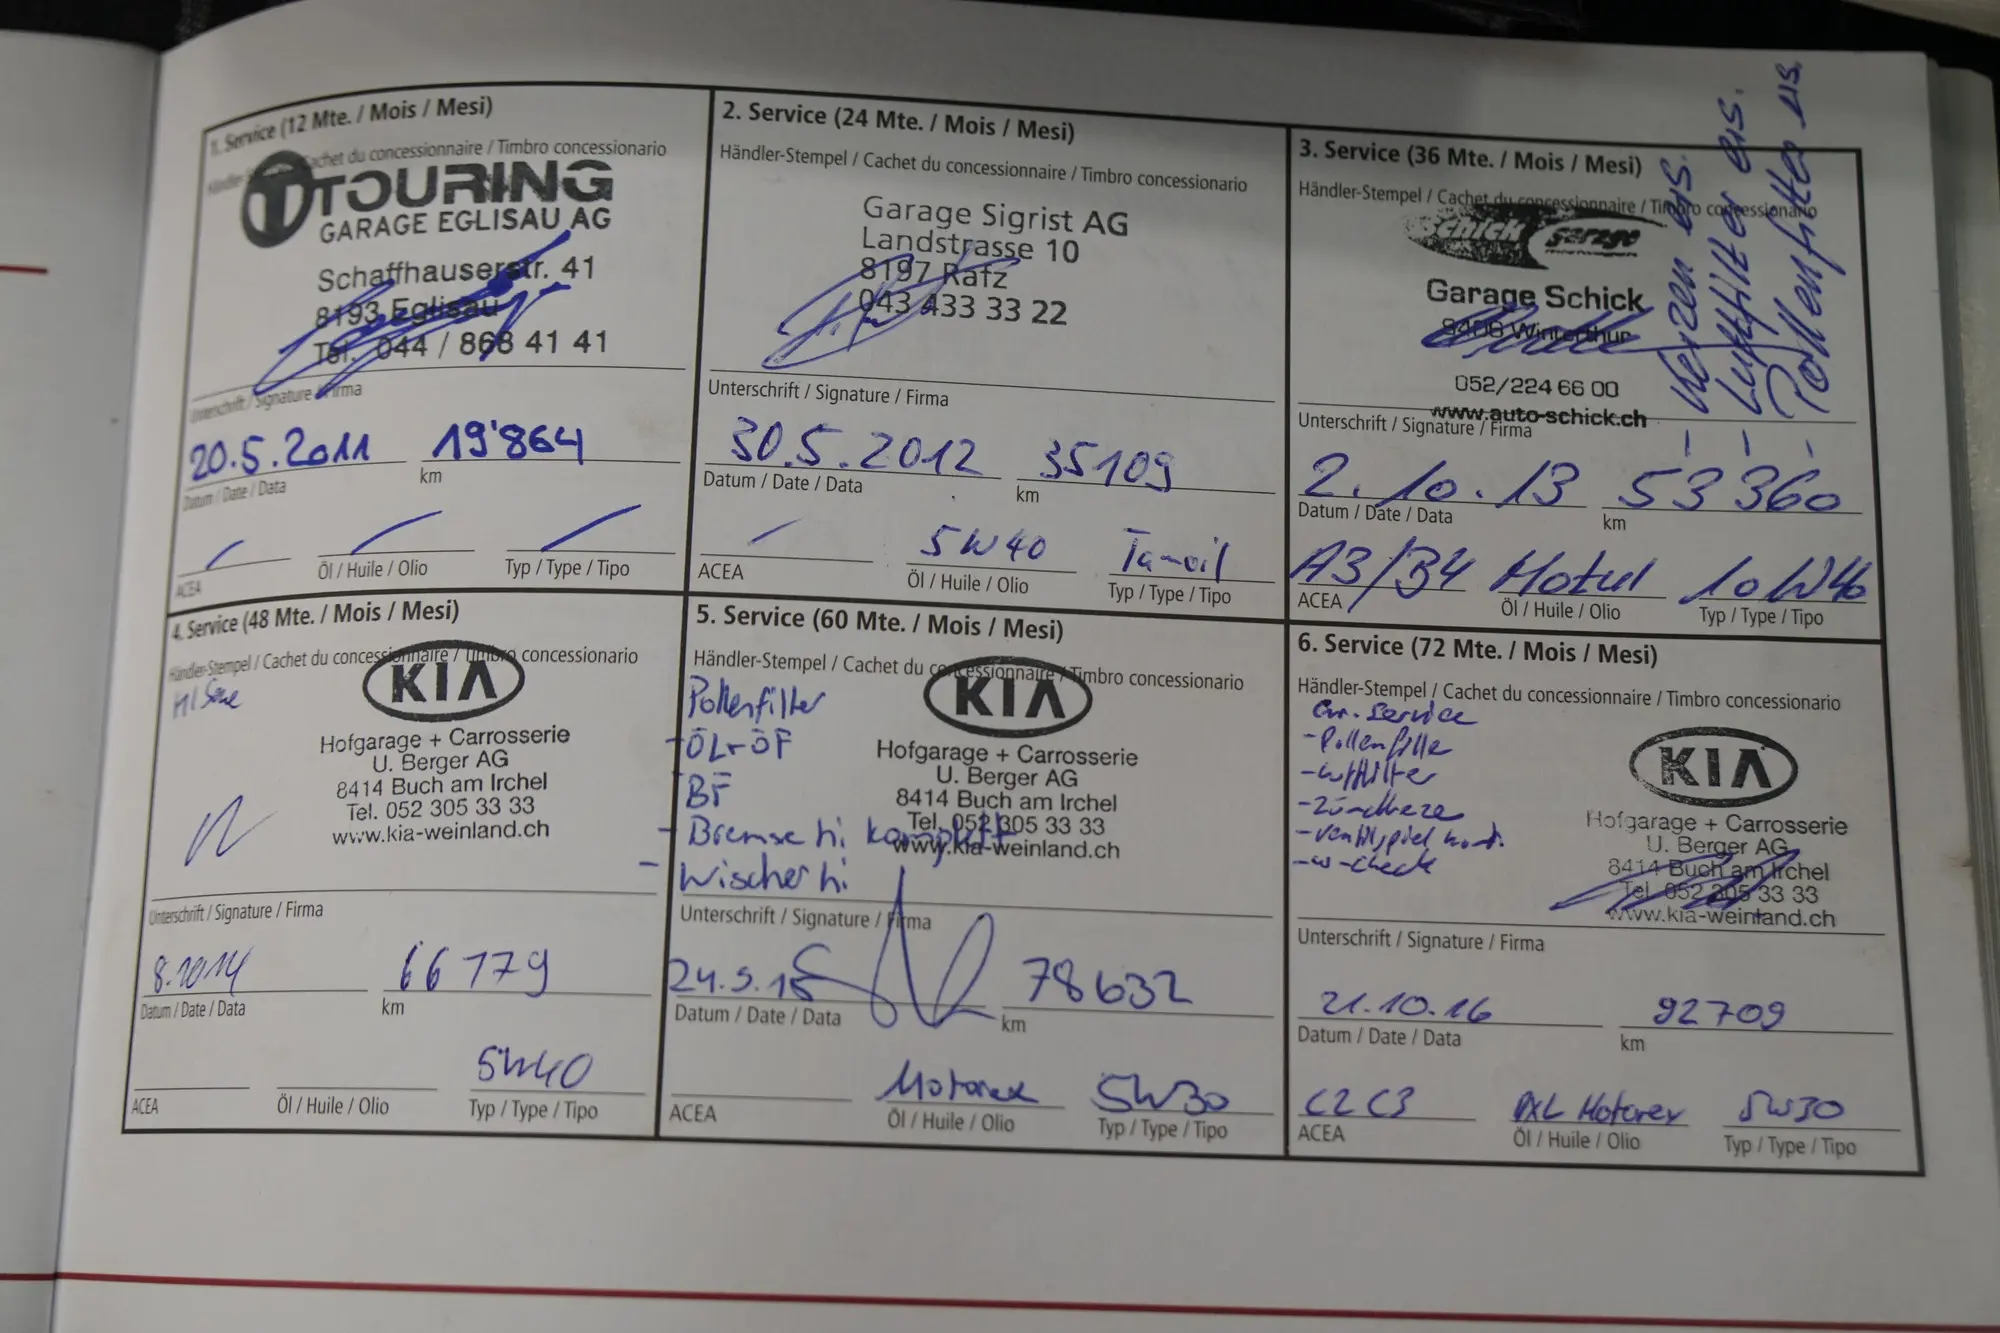 1. Service (12 Mte. / Mois / Mesi)
Cachet du concessionnaire / Timbro concessionario
TOURING
GARAGE EGLISAU AG
Schaffhauserstr. 41
8193 Eglisau
Tel. 044 / 868 41 41
Unterschrift / Signature / Firma
20.5.2011 19'864
Datum / Date / Data km
ACEA Öl / Huile / Olio Typ / Type / Tipo
2. Service (24 Mte. / Mois / Mesi)
Händler-Stempel / Cachet du concessionnaire / Timbro concessionario
Garage Sigrist AG
Landstrasse 10
8197 Rafz
043 433 33 22
Unterschrift / Signature / Firma
30.5.2012 35109
Datum / Date / Data km
5W40 Tamoil
ACEA Öl / Huile / Olio Typ / Type / Tipo
3. Service (36 Mte. / Mois / Mesi)
Händler-Stempel / Cachet du concessionnaire / Timbro concessionario
Schick garage
Garage Schick
8406 Winterthur
052/224 66 00
www.auto-schick.ch
- Kerzen ers.
- Luftfilter ers.
- Pollenfilter ers.
Unterschrift / Signature / Firma
2.10.13 53360
Datum / Date / Data km
A3/B4 Motul 10W40
ACEA Öl / Huile / Olio Typ / Type / Tipo
4. Service (48 Mte. / Mois / Mesi)
Händler-Stempel / Cachet du concessionnaire / Timbro concessionario
KIA
Hofgarage + Carrosserie
U. Berger AG
8414 Buch am Irchel
Tel. 052 305 33 33
www.kia-weinland.ch
Unterschrift / Signature / Firma
8.2014 66179
Datum / Date / Data km
5W40
ACEA Öl / Huile / Olio Typ / Type / Tipo
5. Service (60 Mte. / Mois / Mesi)
Händler-Stempel / Cachet du concessionnaire / Timbro concessionario
KIA
Hofgarage + Carrosserie
U. Berger AG
8414 Buch am Irchel
Tel. 052 305 33 33
www.kia-weinland.ch
Pollenfilter
- ÖL + ÖF
BF
- Bremse hi komplett
- Wischer hi
Unterschrift / Signature / Firma
78632
Datum / Date / Data km
Motorex 5W30
ACEA Öl / Huile / Olio Typ / Type / Tipo
6. Service (72 Mte. / Mois / Mesi)
Händler-Stempel / Cachet du concessionnaire / Timbro concessionario
Gr. Service
- Pollenfilter
- Luftfilter
- Zündkerze
- Ventilspiel kont.
- W-check
KIA
Hofgarage + Carrosserie
U. Berger AG
8414 Buch am Irchel
Tel. 052 305 33 33
www.kia-weinland.ch
Unterschrift / Signature / Firma
21.10.16 92709
Datum / Date / Data km
C2 C3 Motorex 5W30
ACEA Öl / Huile / Olio Typ / Type / Tipo